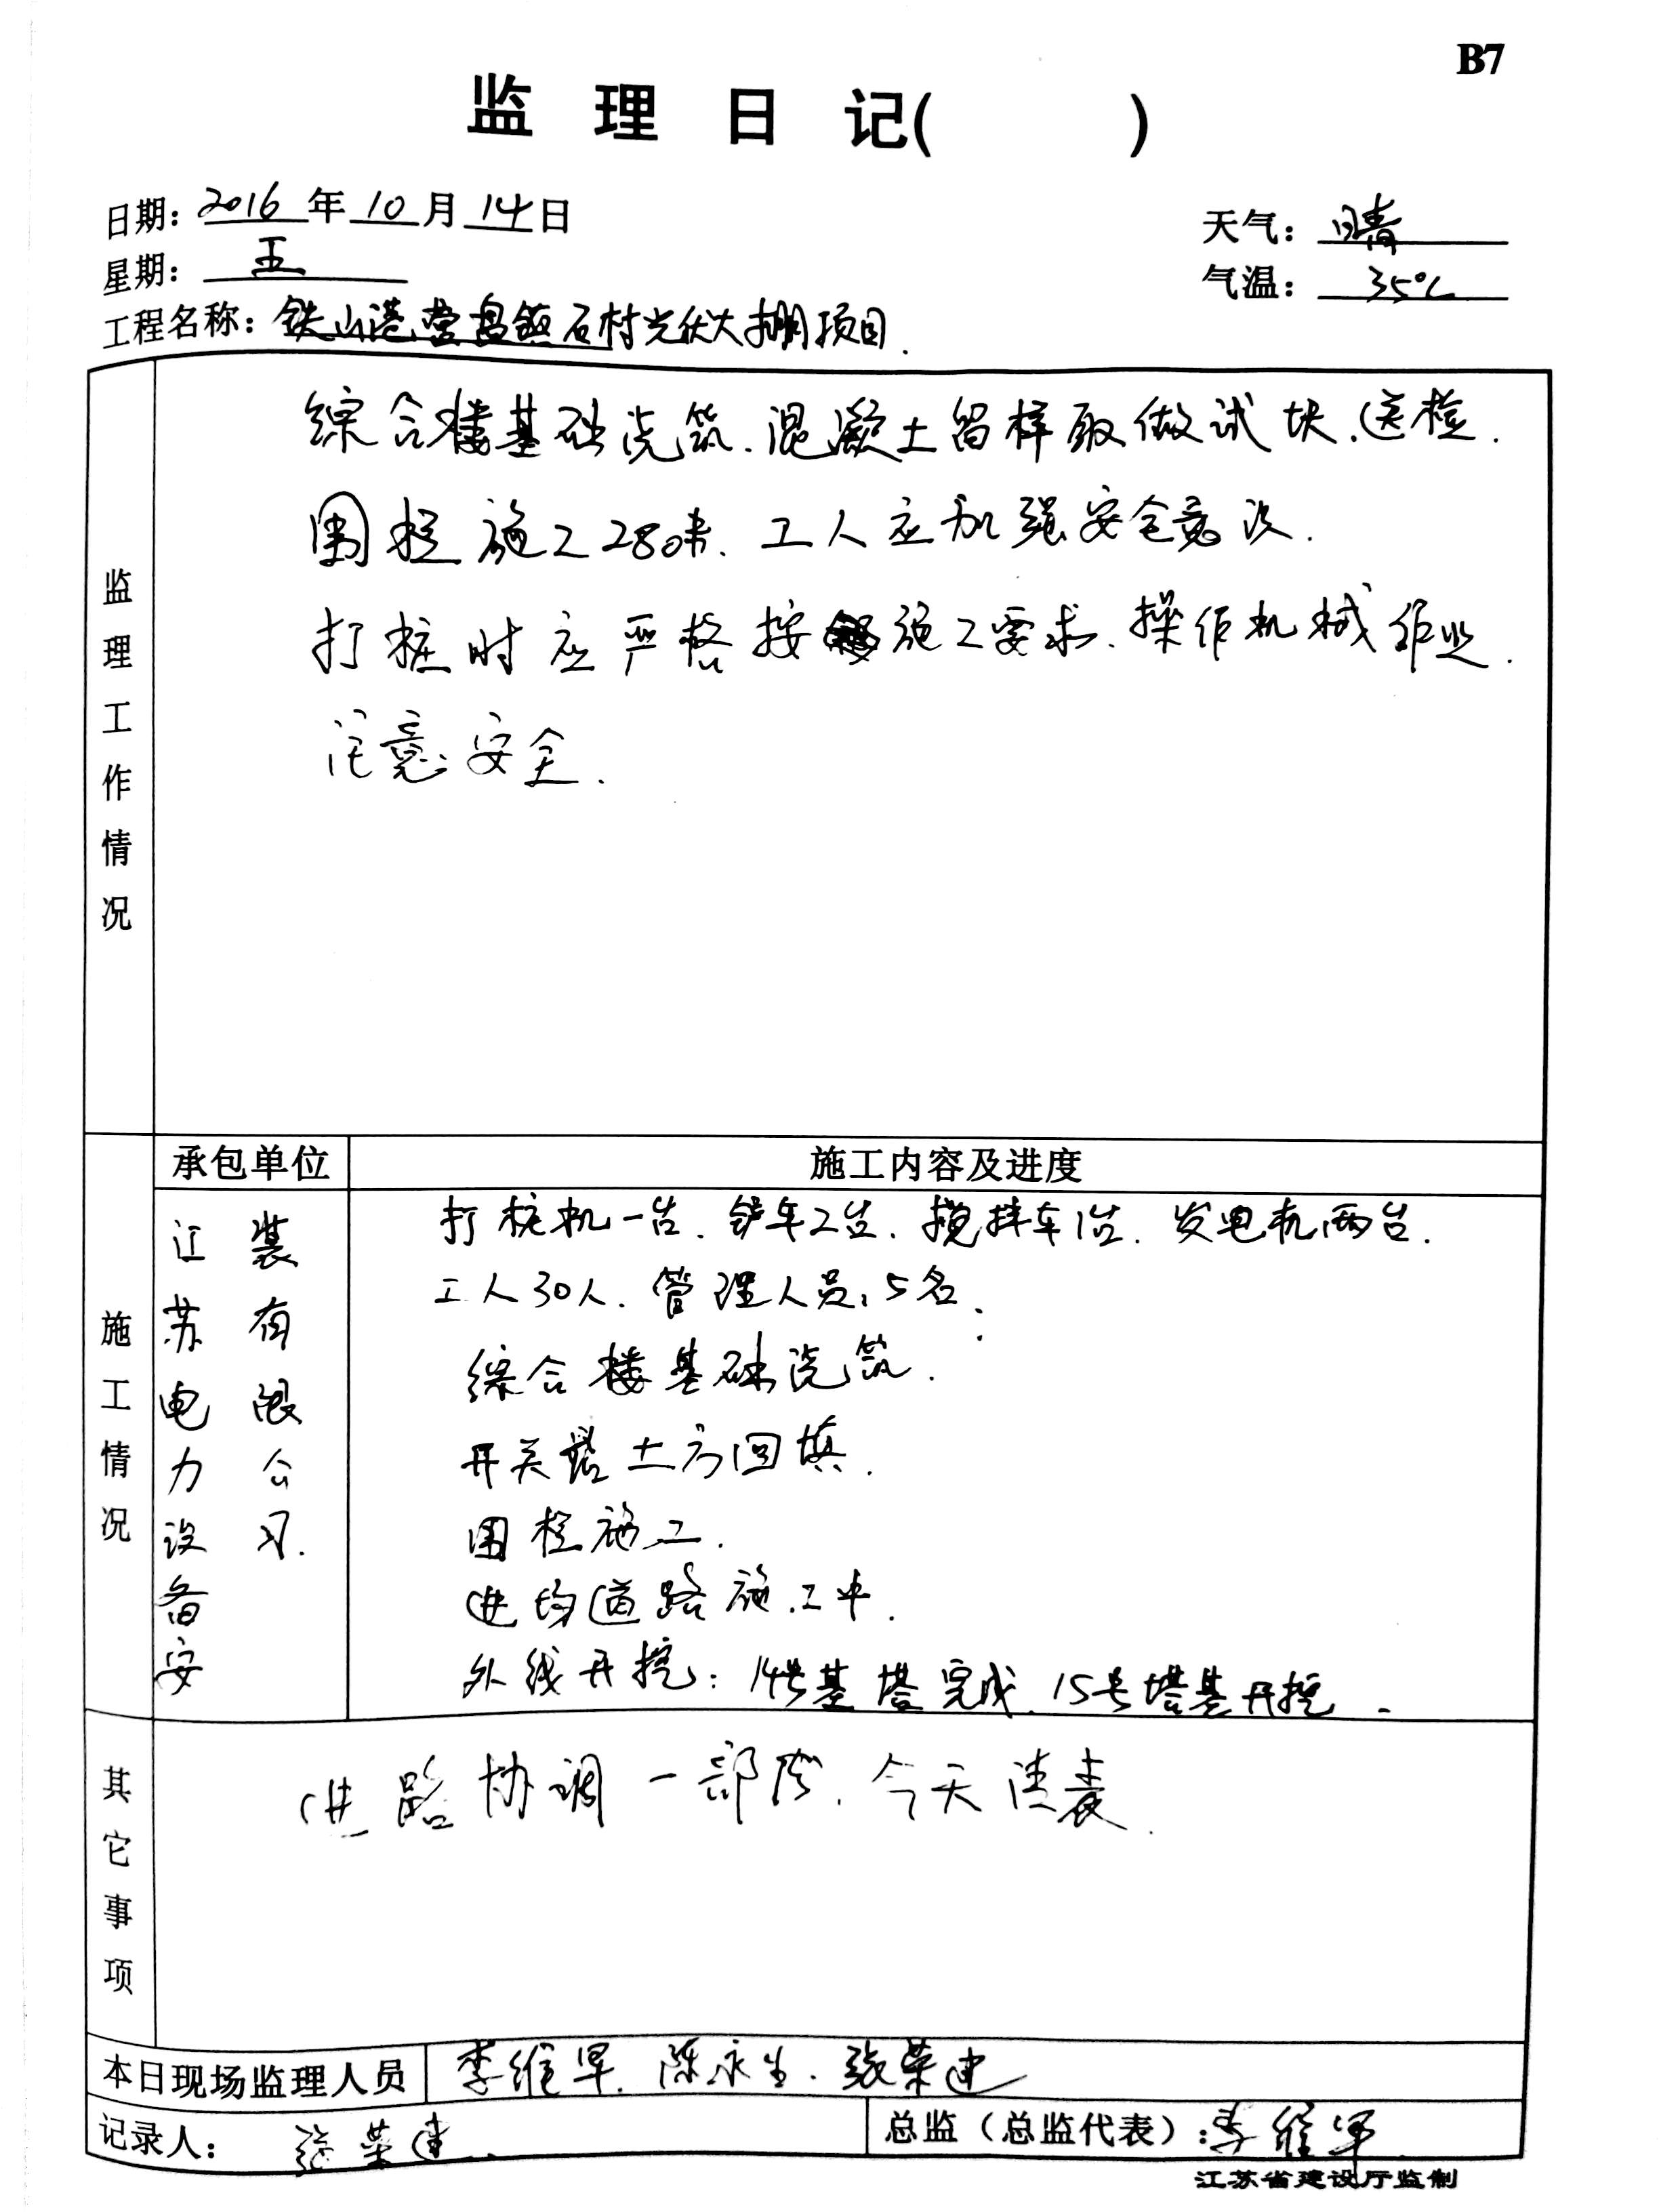 B7
监 理 日 记( )
日期: 2016 年 10 月 14 日
天气: 晴
星期: 五
气温: 35℃
工程名称: 铁山港营盘镇石村光伏大棚项目.
监理工作情况
综合楼基础浇筑.混凝土留样取做试块.送检.
围栏施工280米. 工人应加强安全意识.
打桩时应严格按施工要求.操作机械作业.
注意安全.
承包单位
施工内容及进度
施工情况
江苏电力设备安
装有限公司.
打桩机一台. 铲车2台. 搅拌车1台. 发电机两台.
工人30人. 管理人员15名.
综合楼基础浇筑.
开关站土方回填.
围栏施工.
进场道路施工中.
外线开挖: 14号基塔完成. 15号塔基开挖.
其它事项
进路协调一部份. 今天清表.
本日现场监理人员
李维军. 陈永生. 张荣建
记录人: 张荣建.
总监（总监代表）: 李维军
江苏省建设厅监制